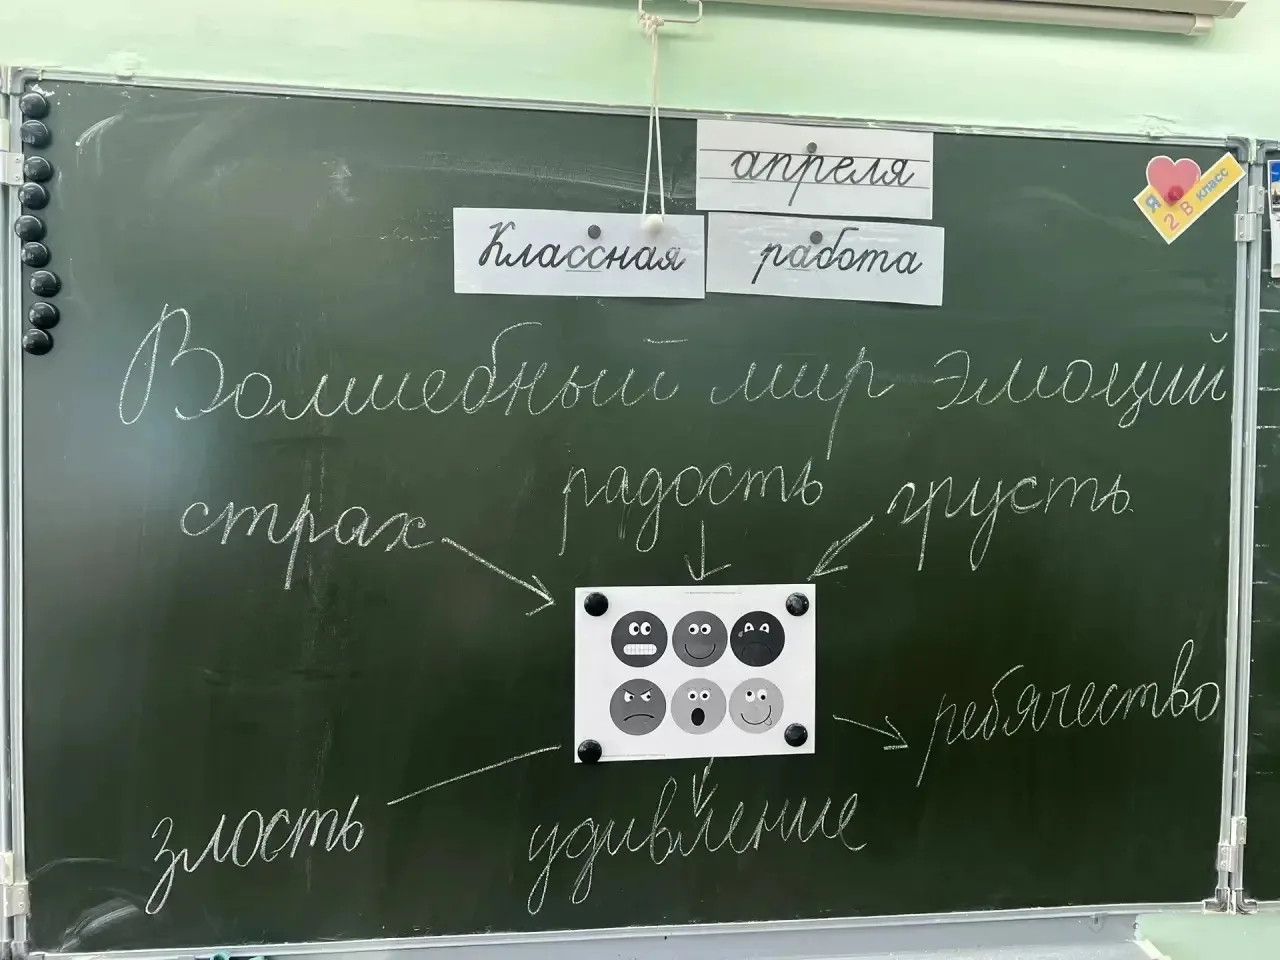 апреля
Классная работа
Я 2 В класс
Волшебный мир эмоций
страх радость грусть
ребячество
злость удивление